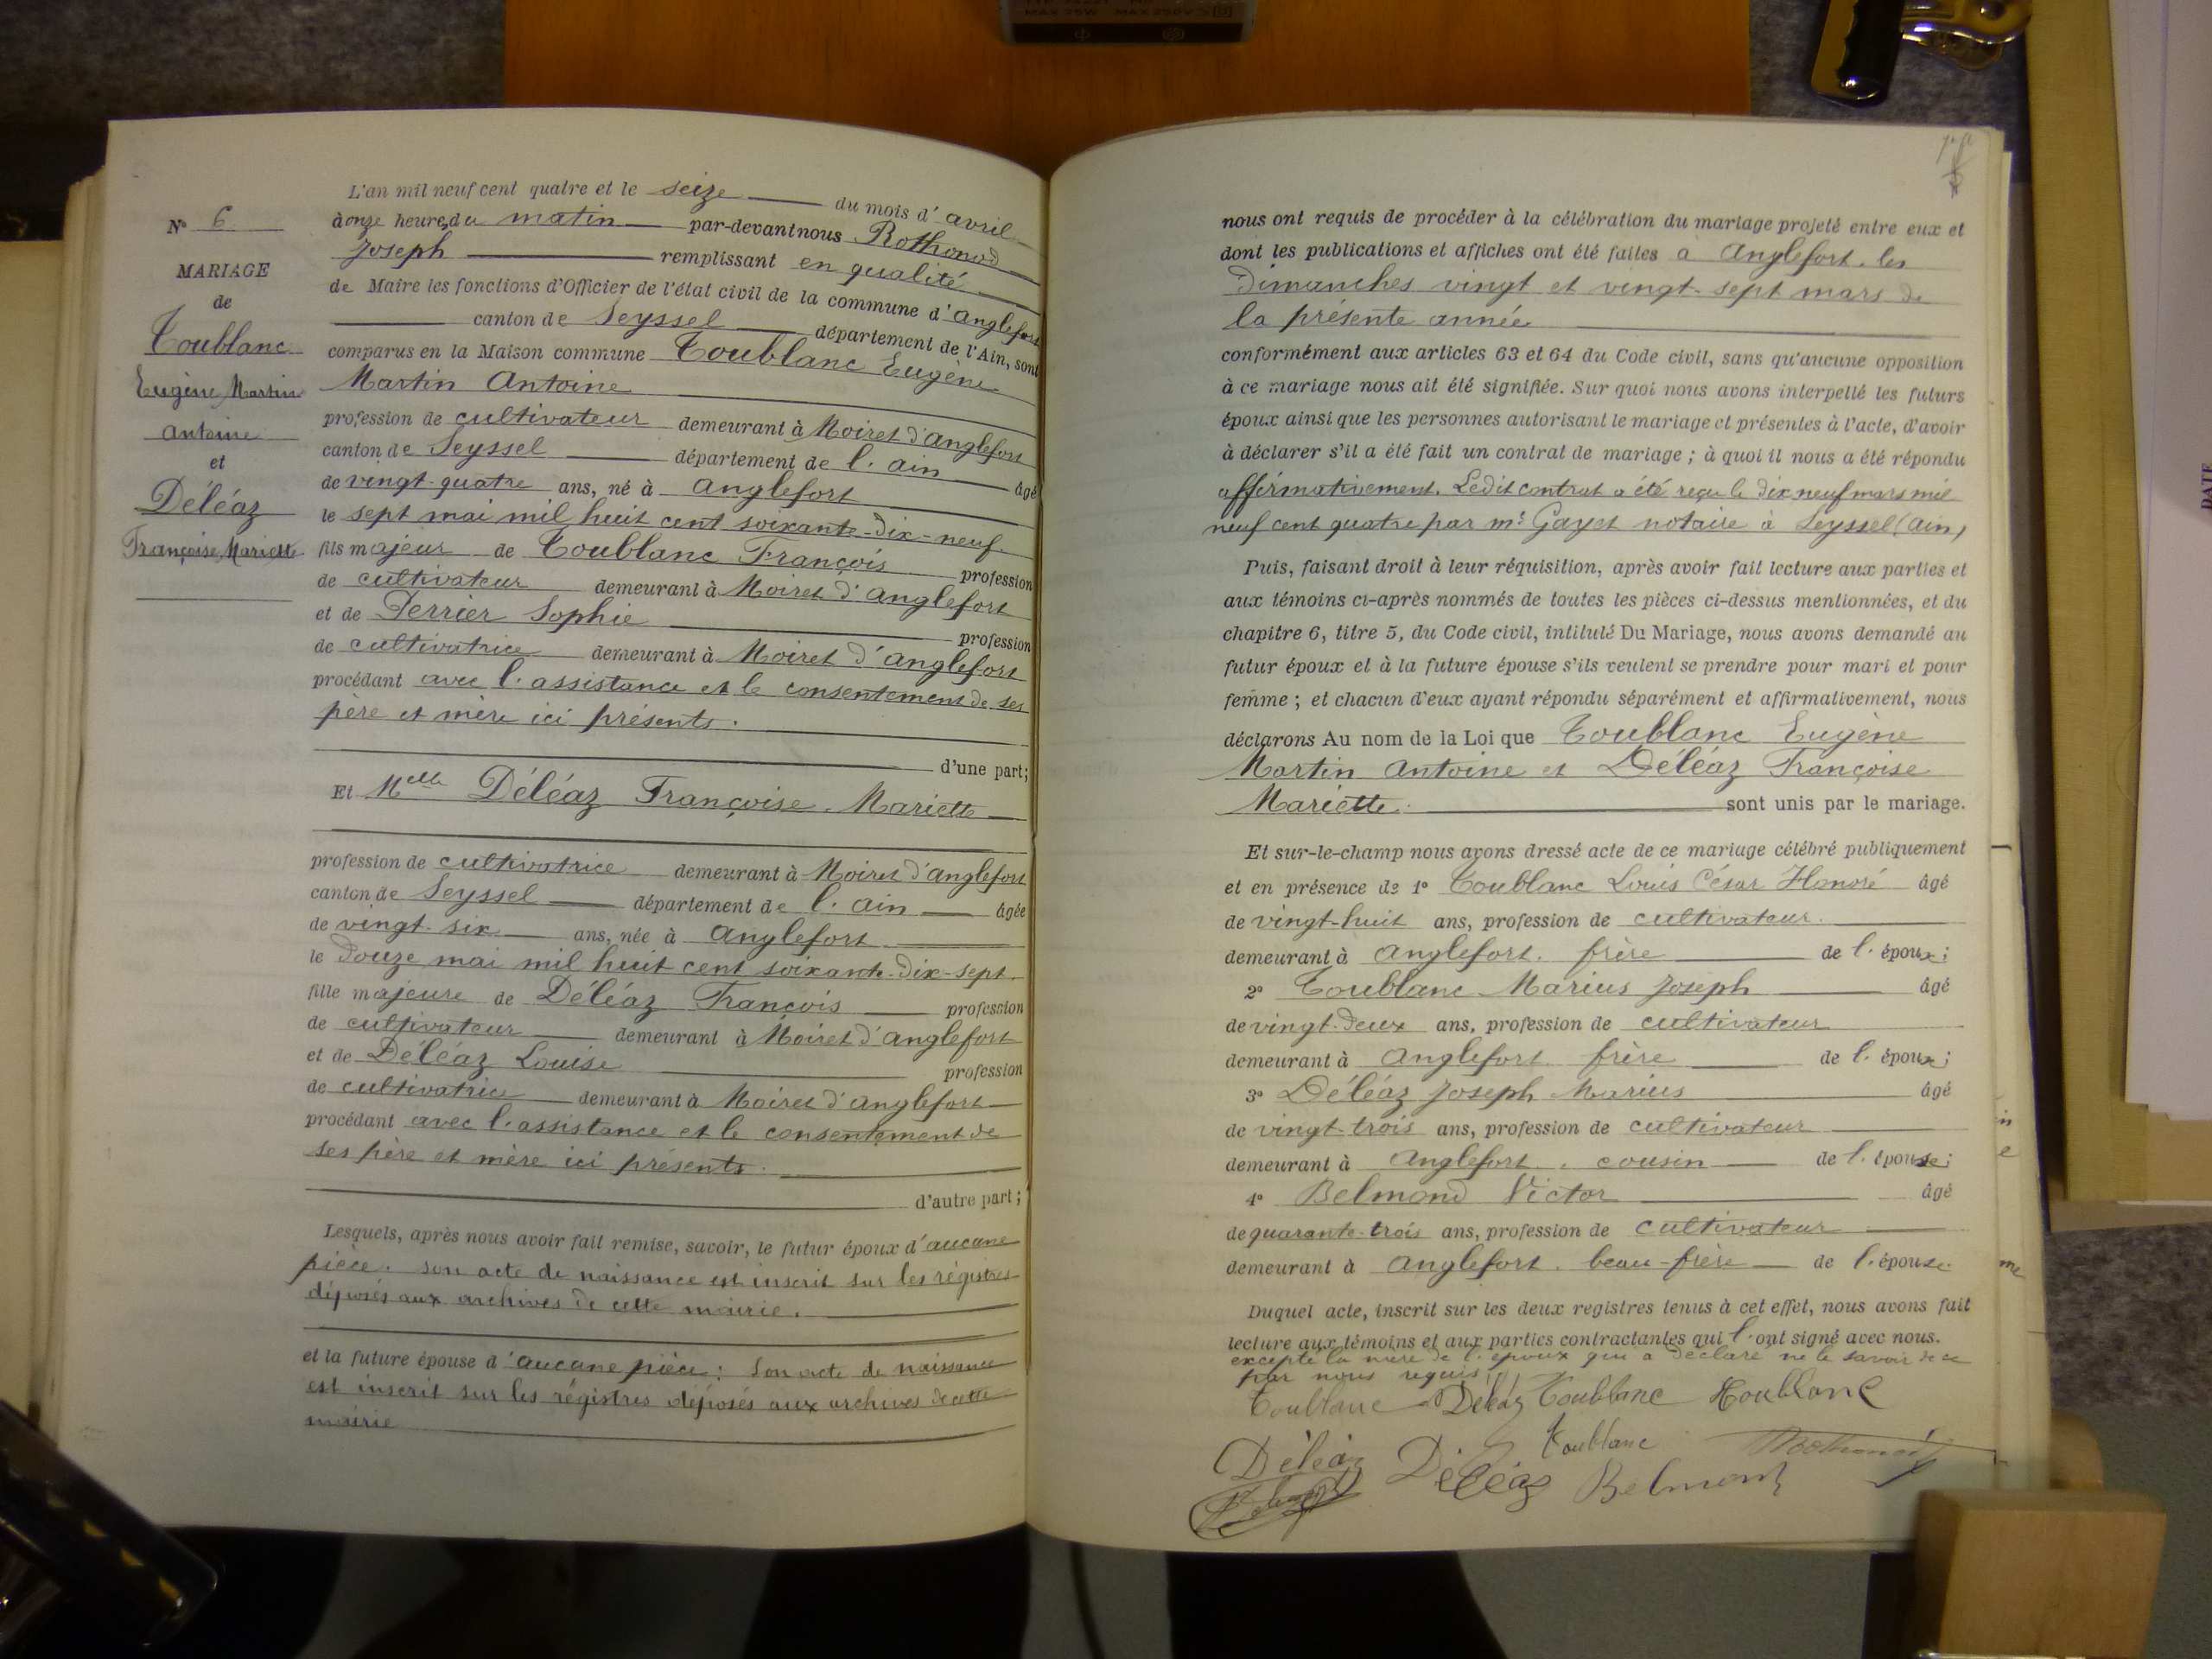 N° 6
MARIAGE
de
Toublanc
Eugène Martin
Antoine
et
Déléaz
Françoise Mariette
L'an mil neuf cent quatre et le seize du mois d'avril
à onze heures du matin par-devant nous Rothonod
Joseph remplissant en qualité
de Maire les fonctions d'Officier de l'état civil de la commune d'Anglefort
canton de Seyssel département de l'Ain, sont
comparus en la Maison commune Toublanc Eugène
Martin Antoine
profession de cultivateur demeurant à Moiret d'Anglefort
canton de Seyssel département de l'ain âgé
de vingt-quatre ans, né à Anglefort
le sept mai mil huit cent soixante-dix-neuf
fils majeur de Toublanc François profession
de cultivateur demeurant à Moiret d'Anglefort
et de Perrier Sophie profession
de cultivatrice demeurant à Moiret d'Anglefort
procédant avec l'assistance et le consentement de ses
père et mère ici présents.
d'une part;
Et Melle Déléaz Françoise Mariette
profession de cultivatrice demeurant à Moiret d'Anglefort
canton de Seyssel département de l'ain âgée
de vingt-six ans, née à Anglefort
le douze mai mil huit cent soixante-dix-sept
fille majeure de Déléaz François profession
de cultivateur demeurant à Moiret d'Anglefort
et de Déléaz Louise profession
de cultivatrice demeurant à Moiret d'Anglefort
procédant avec l'assistance et le consentement de
ses père et mère ici présents.
d'autre part;
Lesquels, après nous avoir fait remise, savoir, le futur époux d'aucune
pièce. son acte de naissance est inscrit sur les régistres
déposés aux archives de cette mairie.
et la future épouse d'aucune pièce: Son acte de naissance
est inscrit sur les régistres déposés aux archives de cette
mairie
nous ont requis de procéder à la célébration du mariage projeté entre eux et
dont les publications et affiches ont été faites à Anglefort. les
Dimanches vingt et vingt-sept mars de
la présente année
conformément aux articles 63 et 64 du Code civil, sans qu'aucune opposition
à ce mariage nous ait été signifiée. Sur quoi nous avons interpellé les futurs
époux ainsi que les personnes autorisant le mariage et présentes à l'acte, d'avoir
à déclarer s'il a été fait un contrat de mariage; à quoi il nous a été répondu
affirmativement. Ledit contrat a été reçu le dix neuf mars mil
neuf cent quatre par me Gayet notaire à Seyssel (ain)
Puis, faisant droit à leur réquisition, après avoir fait lecture aux parties et
aux témoins ci-après nommés de toutes les pièces ci-dessus mentionnées, et du
chapitre 6, titre 5, du Code civil, intitulé Du Mariage, nous avons demandé au
futur époux et à la future épouse s'ils veulent se prendre pour mari et pour
femme; et chacun d'eux ayant répondu séparément et affirmativement, nous
déclarons Au nom de la Loi que Toublanc Eugène
Martin Antoine et Déléaz Françoise
Mariette. sont unis par le mariage.
Et sur-le-champ nous avons dressé acte de ce mariage célébré publiquement
et en présence de 1° Toublanc Louis César Honoré âgé
de vingt-huit ans, profession de cultivateur.
demeurant à Anglefort. frère de l'époux;
2° Toublanc Marius Joseph âgé
de vingt-deux ans, profession de cultivateur
demeurant à Anglefort frère de l'époux;
3° Déléaz Joseph Marius âgé
de vingt-trois ans, profession de cultivateur
demeurant à Anglefort. cousin de l'épouse;
4° Belmond Victor âgé
de quarante-trois ans, profession de cultivateur
demeurant à Anglefort. beau-frère de l'épouse.
Duquel acte, inscrit sur les deux registres tenus à cet effet, nous avons fait
lecture aux témoins et aux parties contractantes qui l'ont signé avec nous.
excepté la mère de l'époux qui a déclaré ne le savoir de ce
par nous requis.
Toublanc Déléaz Toublanc Toublanc
Déléaz Déléaz Toublanc Rothonod
Belmont
DATE
in
e
me